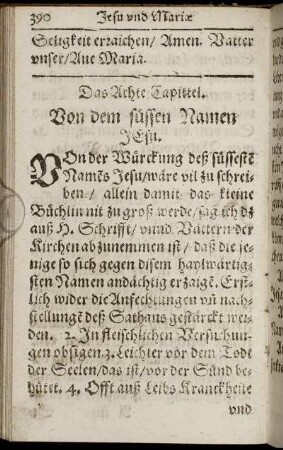 390 Jesu vnd Mariæ
Seligkeit erraichen/ Amen. Vatter
vnser/ Aue Maria.
Das Achte Capittel.
Von dem süssen Namen
JEsu.
VOn der Würckung deß süssestē
Namēs Jesu/ wäre vil zu schrei-
ben/ allein damit das kleine
Büchlin nit zu groß werde/ sag ich dz
auß H. Schrifft/ vnnd Vättern der
Kirchen abzunemmen ist/ daß die je-
nige so sich gegen disem haylwärtig-
sten Namen andächtig erzaigē. Erst-
lich wider die Anfechtungen vñ nach-
stellungē deß Sathans gestärckt wer-
den. 2. In fleischlichen Versuchun-
gen obsigen 3. Leichter vor dem Todt
der Seelen/ das ist/ vor der Sünd be-
hütet. 4. Offt auß Leibs Kranckheite
vnd